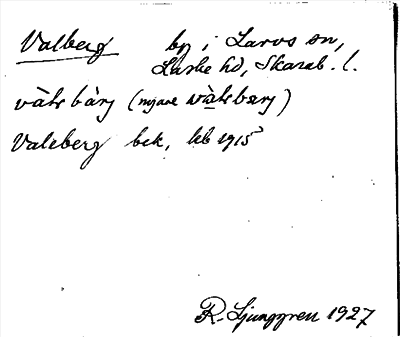 Valberg by i Larvs sn,
Laske hd, Skarab. l.
vàls bärj (nyare wàlsbärj)
Valeberg bek, leb 1915
R. Ljunggren 1927